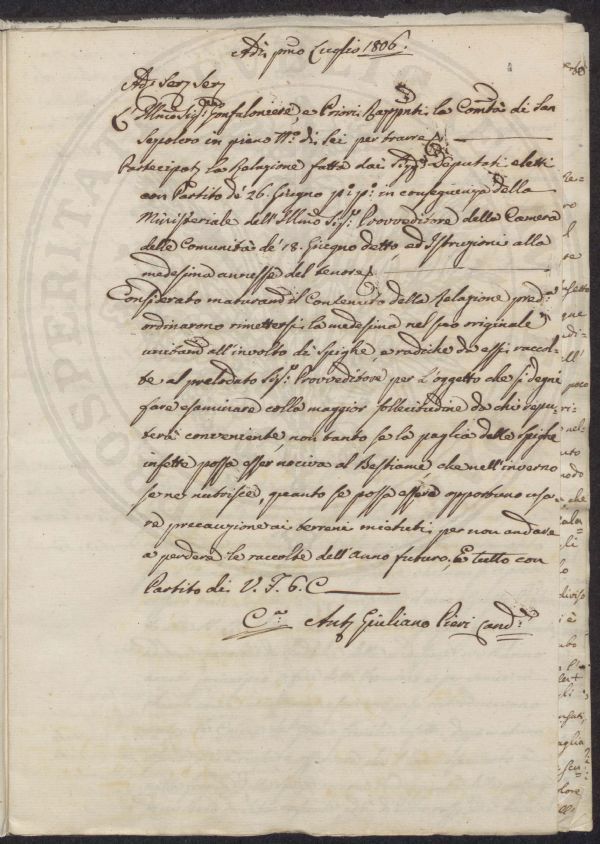 Adì pmo Luglio 1806.
Adj Serj Serj
L' Illmi Sigri Gonfaloniere e Priori Rappnti la Comtà di San
Sepolcro in pieno No di sei per trarre
Partecipat la Relazione fatta dai SSri Deputati eletti
con Partito de' 26. Giugno po: po: in conseguenza della
Ministeriale dell' Illmo Sigr Provveditore della Camera
delle Comunità de' 18. Giugno detto, ed Istruzioni alla
medesima annesse del tenore
Considerato maturamte il Contenuto della Relazione preda
ordinarono rimettersi la medesima nel suo originale
unitamte all' involto di Spighe e radiche da essi raccol-
te al prelodato Sigr Provveditore per l'oggetto che si degni
fare esaminare colla maggior sollecitudine da chi repu-
terà conveniente, non tanto se la paglia delle spighe
infette possa esser nociva al Bestiame che nell' inverno
se ne nutrisce, quanto se possa essere opportuno usa-
re precauzione ai terreni mietuti, per non andare
a perdere le raccolte dell' Anno futuro; E tutto con
Partito di V. F. 6. C
Ca Antj Giuliano Pieri Cance